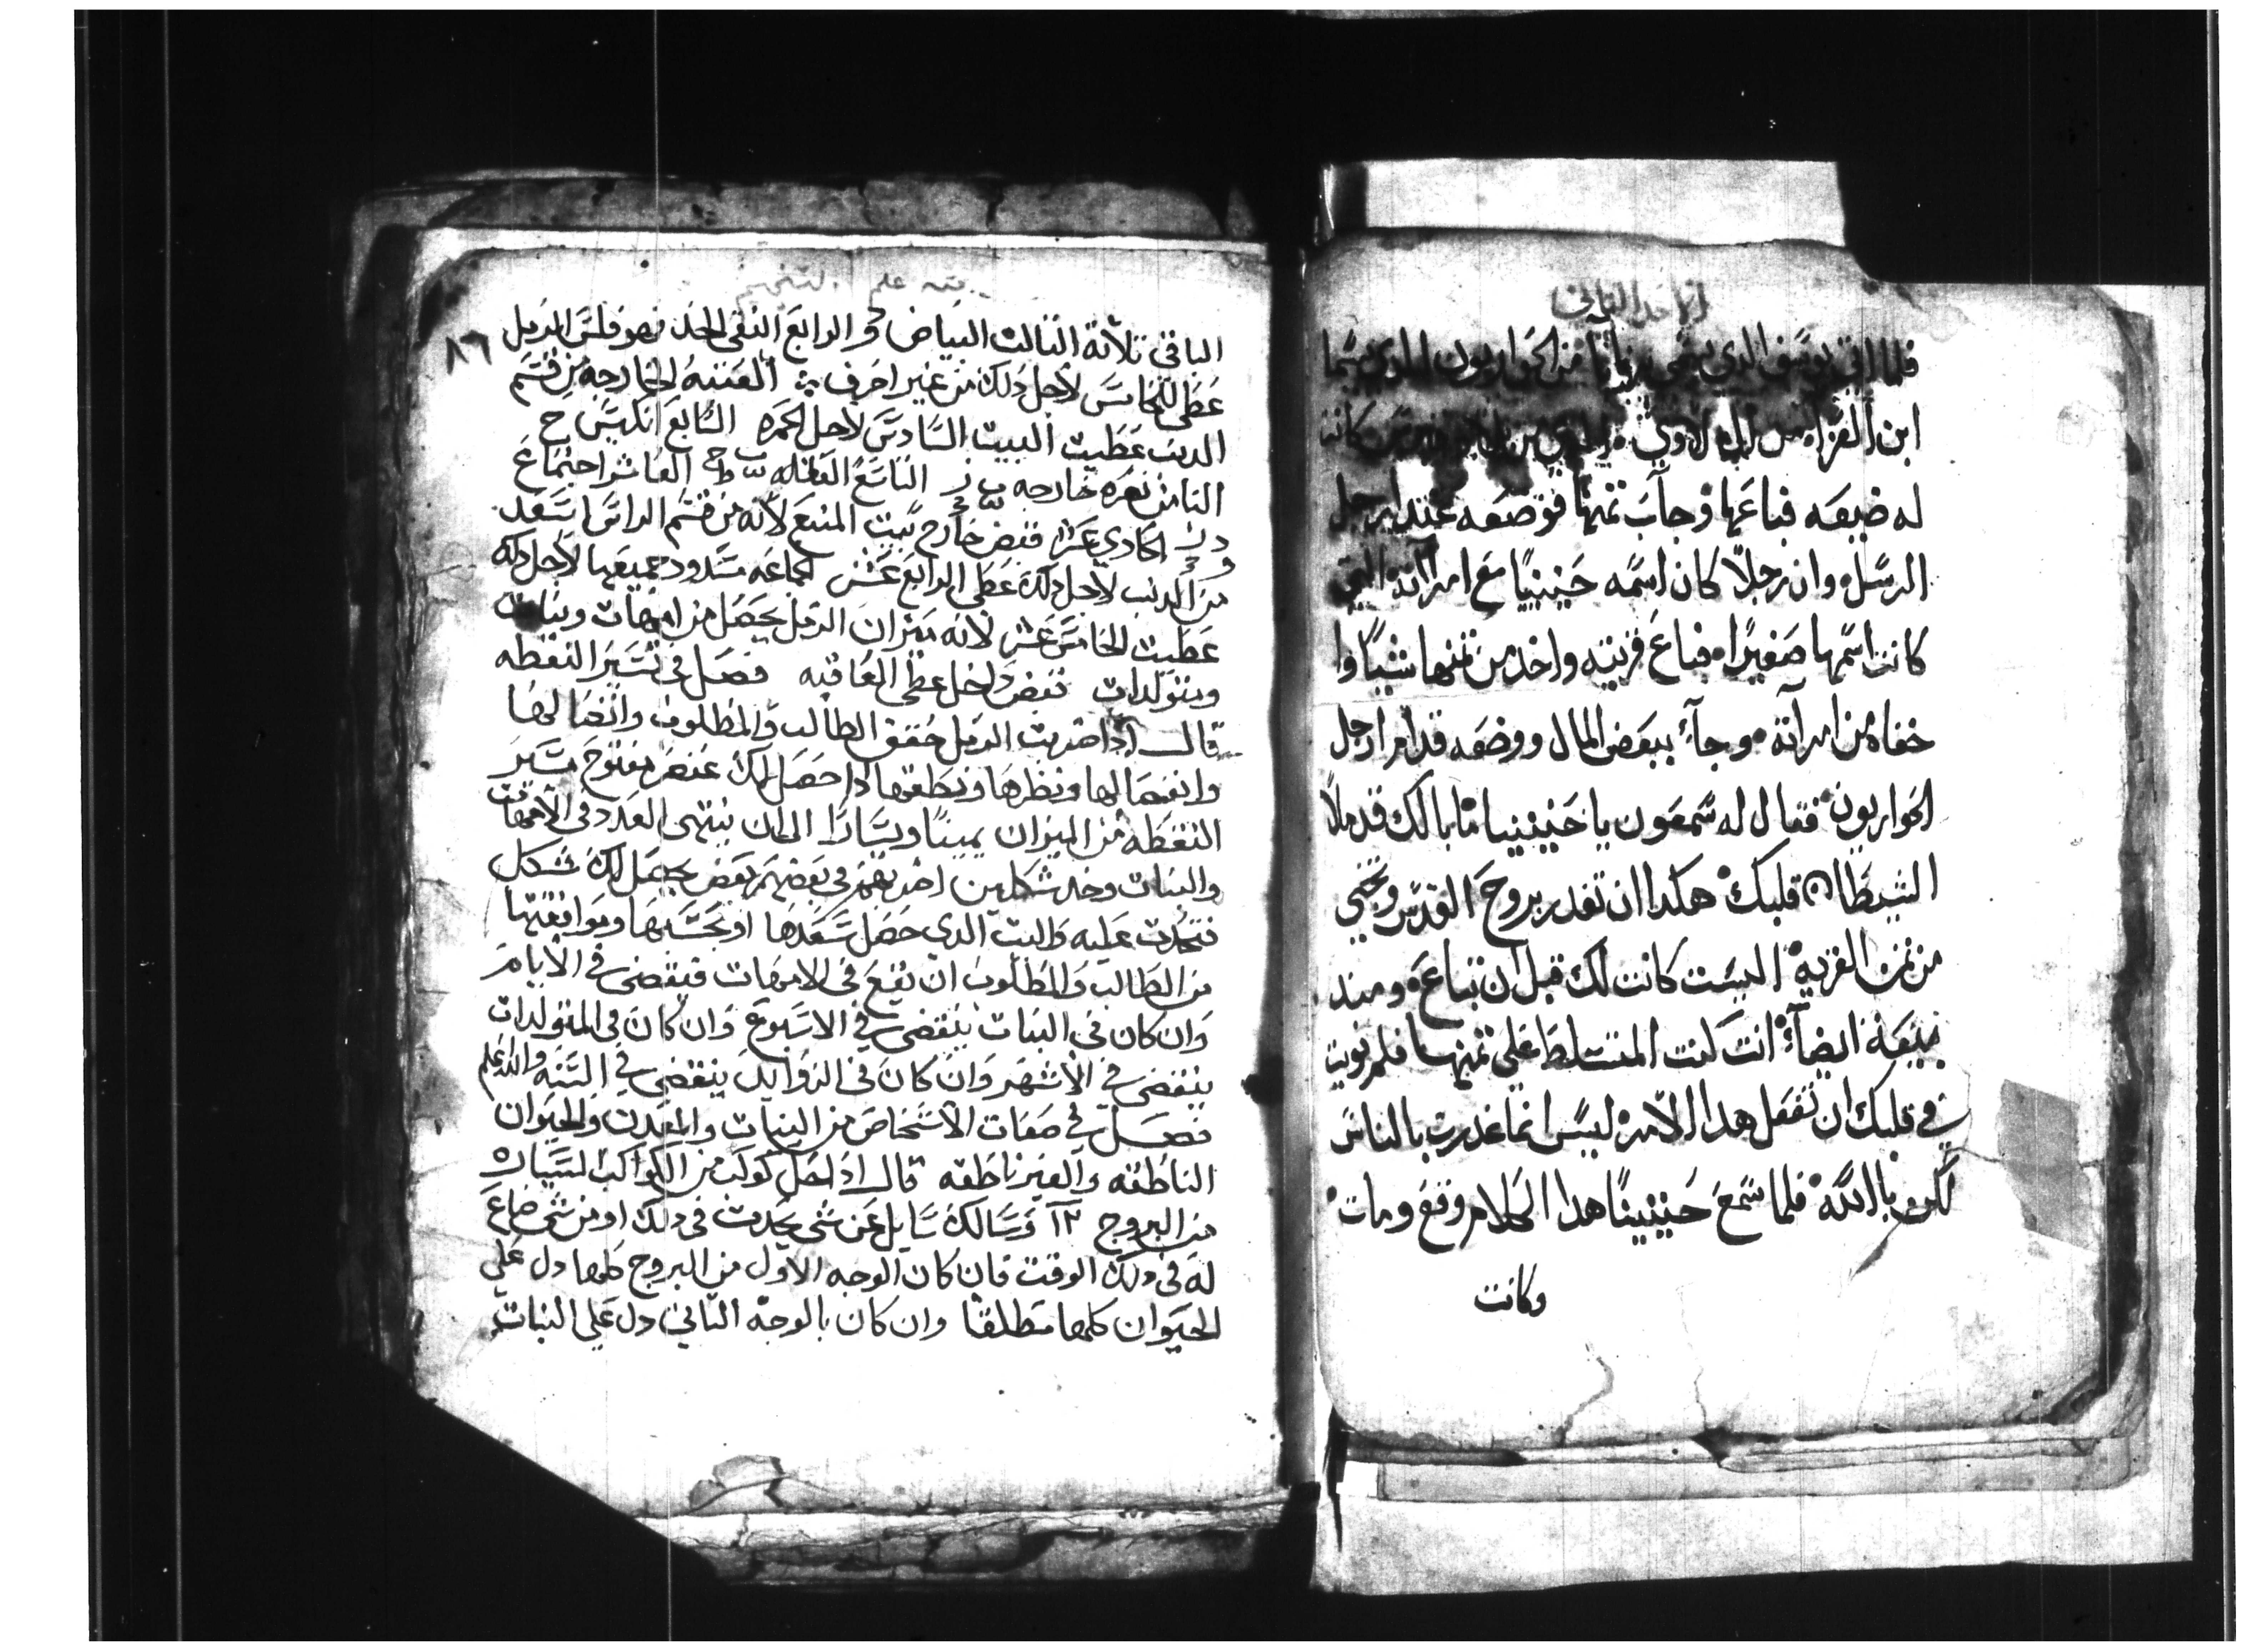 الاحد الثاني
فلما اتي يوسف الدي يسمي برنابا من الحواريون الدي يسما
ابن العزا من لاوي كانت
له ضيعه فباعها وجاب تمنها فوضعه عند ارجل
الرسل وان رجلا كان اسمه حنينيا مع امراته التي
كانت اسمها صفيرا فباع قريته واخد من تمنها شيا وا
خفاه من امراته وجاء ببعض المال ووضعه قدام ارجل
الحواريون فقال له شمعون يا حنينيا ما بالك قد ملا
الشيطان قلبك هكدا ان تغدر بروح القدس وتخبي
من تمن القريه اليست كانت لك قبل ان تباع ومند
بيعه ايضا انت كنت المتسلط علي تمنها فلم نويت
في قلبك ان تفعل هدا الامر ليس انما غدرت بالناس
لكن بالله فلما سمع حنينيا هدا الكلام وقع ومات
وكانت
علم
٨٦
الباقي تلاتة التالت البياض والرابع النقي الخد فهو فلس الرمل
عطي للخامس لاجل دلك من غير احرف العتبه الخارجه من قسم
الدنب عطيت البيت السادس لاجل الحمره السابع انكيس ح
التامن نصره خارجه التاسع العقله العاشر اجتماع
الحادي عشر قبض خارج بيت المنبع لانه من قسم الراس اسعد
من الدنب لاجل دلك عطي الرابع عشر الجماعه مسدود جميعها لاجل دلك
عطيت الخامس عشر لانه ميزان الرمل يحصل من امهات وبنات
ومتولدات قبض داخل عطي العاقبه فصل في تسير النقطه
قال ادا ضربت الرمل حقق الطالب والمطلوب واتصالها
وانفصالها ونظرها ونطقها ادا حصل لك عنصر مفتوح سير
النقطه من الميزان يمينا ويسارا الي ان ينتهي العدد في الامهات
والبنات وخد شكلين اضربهم في بعضهم بعض يحصل لك شكل
فتحدت عليه والبت الدي حصل سعدها او نحسها وموافقتها
من الطالب والمطلوب ان يقع في الامهات فينقضي في الايام
وان كان في البنات ينقضي في الاسبوع وان كان في المتولدات
ينقضي في الاشهر وان كان في الزوايد ينقضي في السنه والله اعلم
فصل في صفات الاشخاص من النبات والمعدن والحيوان
الناطقه والغير ناطقه قال ادا حصل كوكب من الكواكب السياره
من البروج ١٢ وسالك سايل عن شي يحدت في دلك او من شي ضاع
له في دلك الوقت فان كان الوجه الاول من البروج كلها دل علي
الحيوان كلها مطلقا وان كان بالوجه التاني دل علي النبات